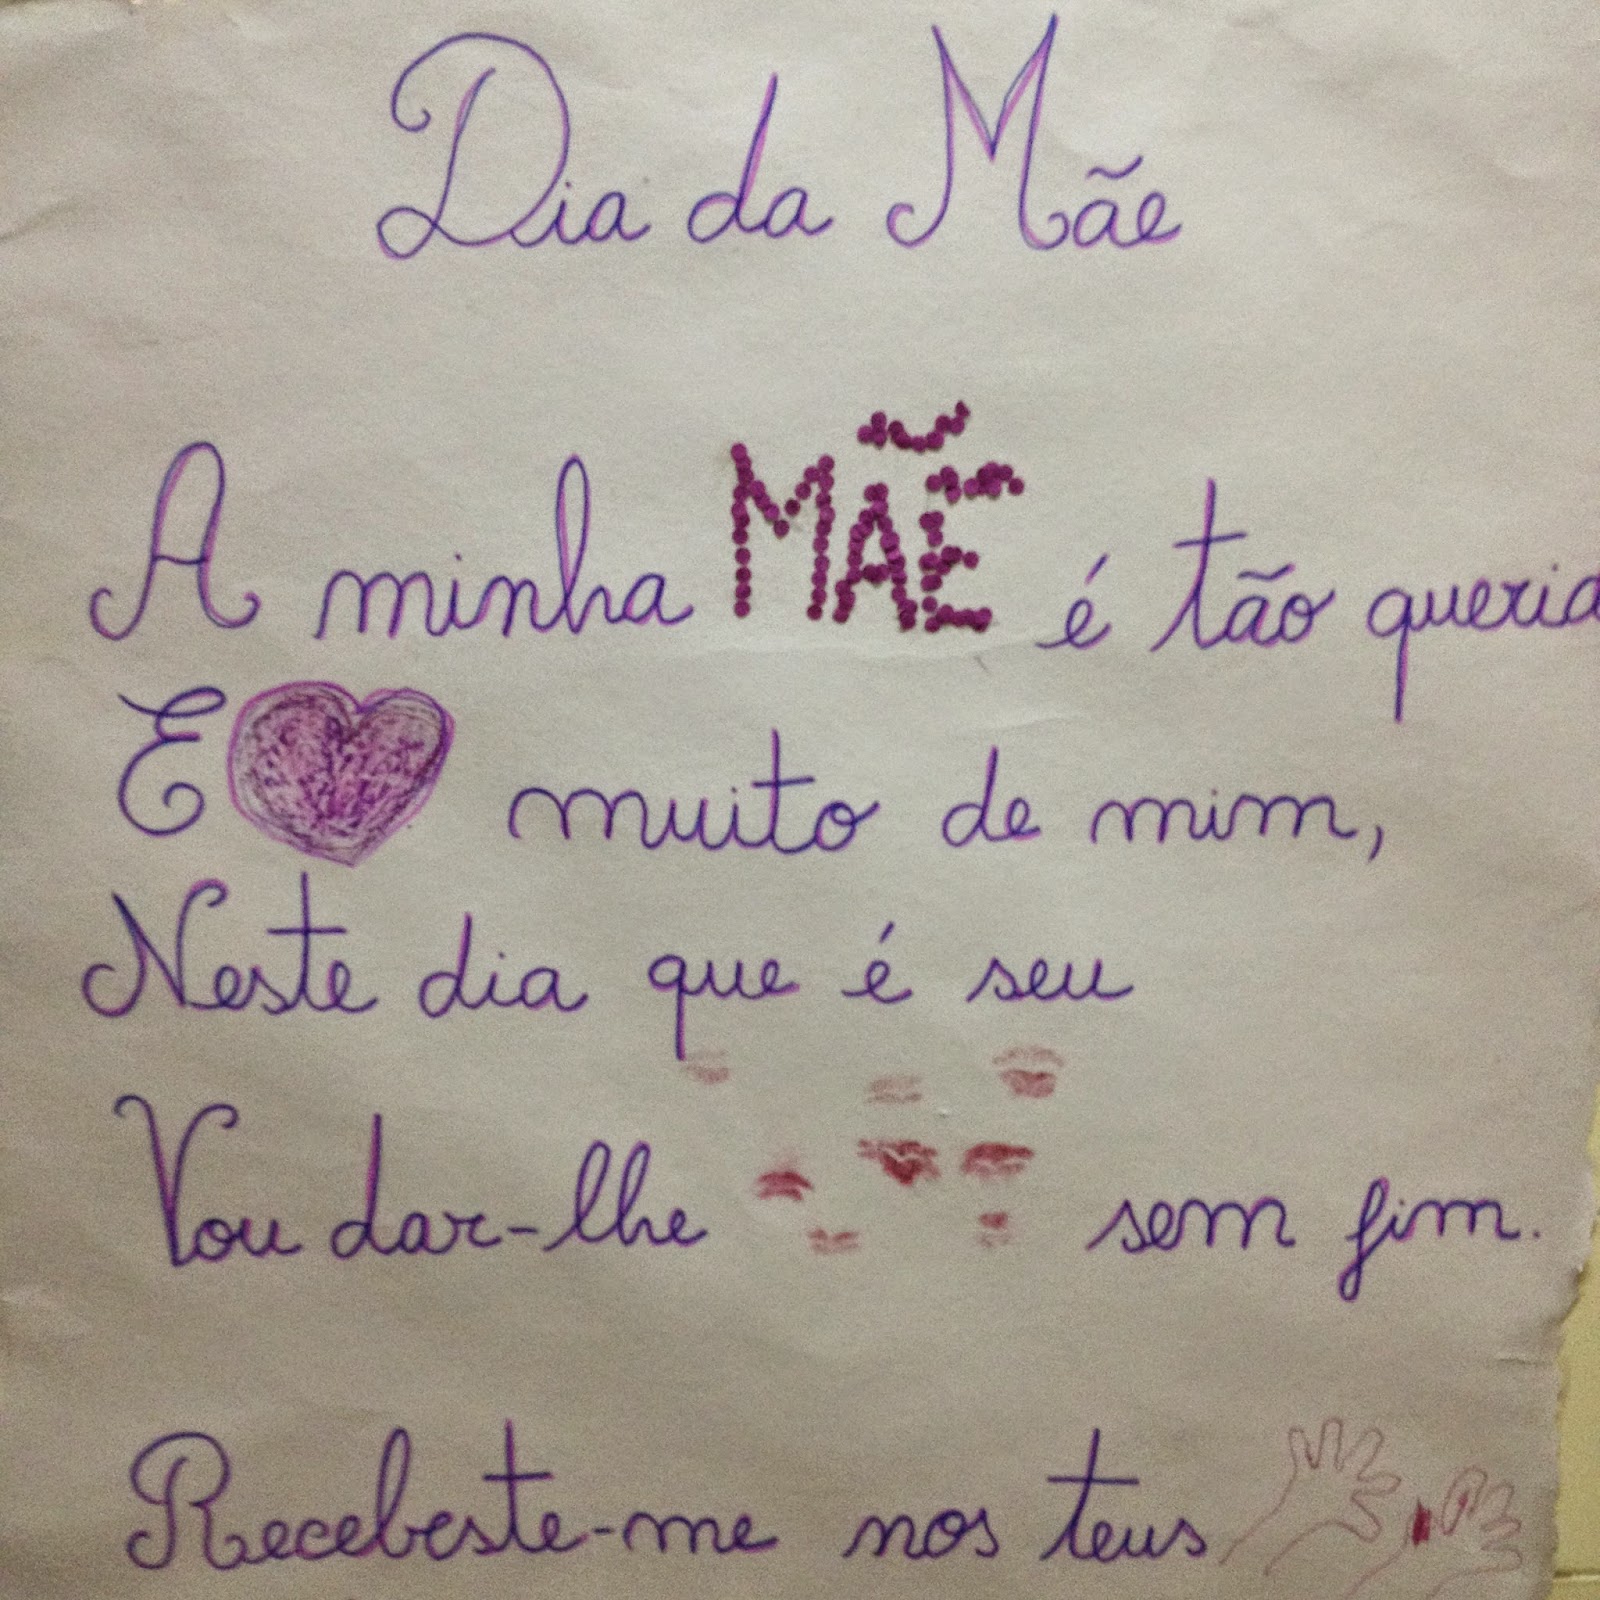 Dia da Mãe
A minha MÃE é tão querid
E muito de mim,
Neste dia que é seu
Vou dar-lhe sem fim.
Recebeste-me nos teus